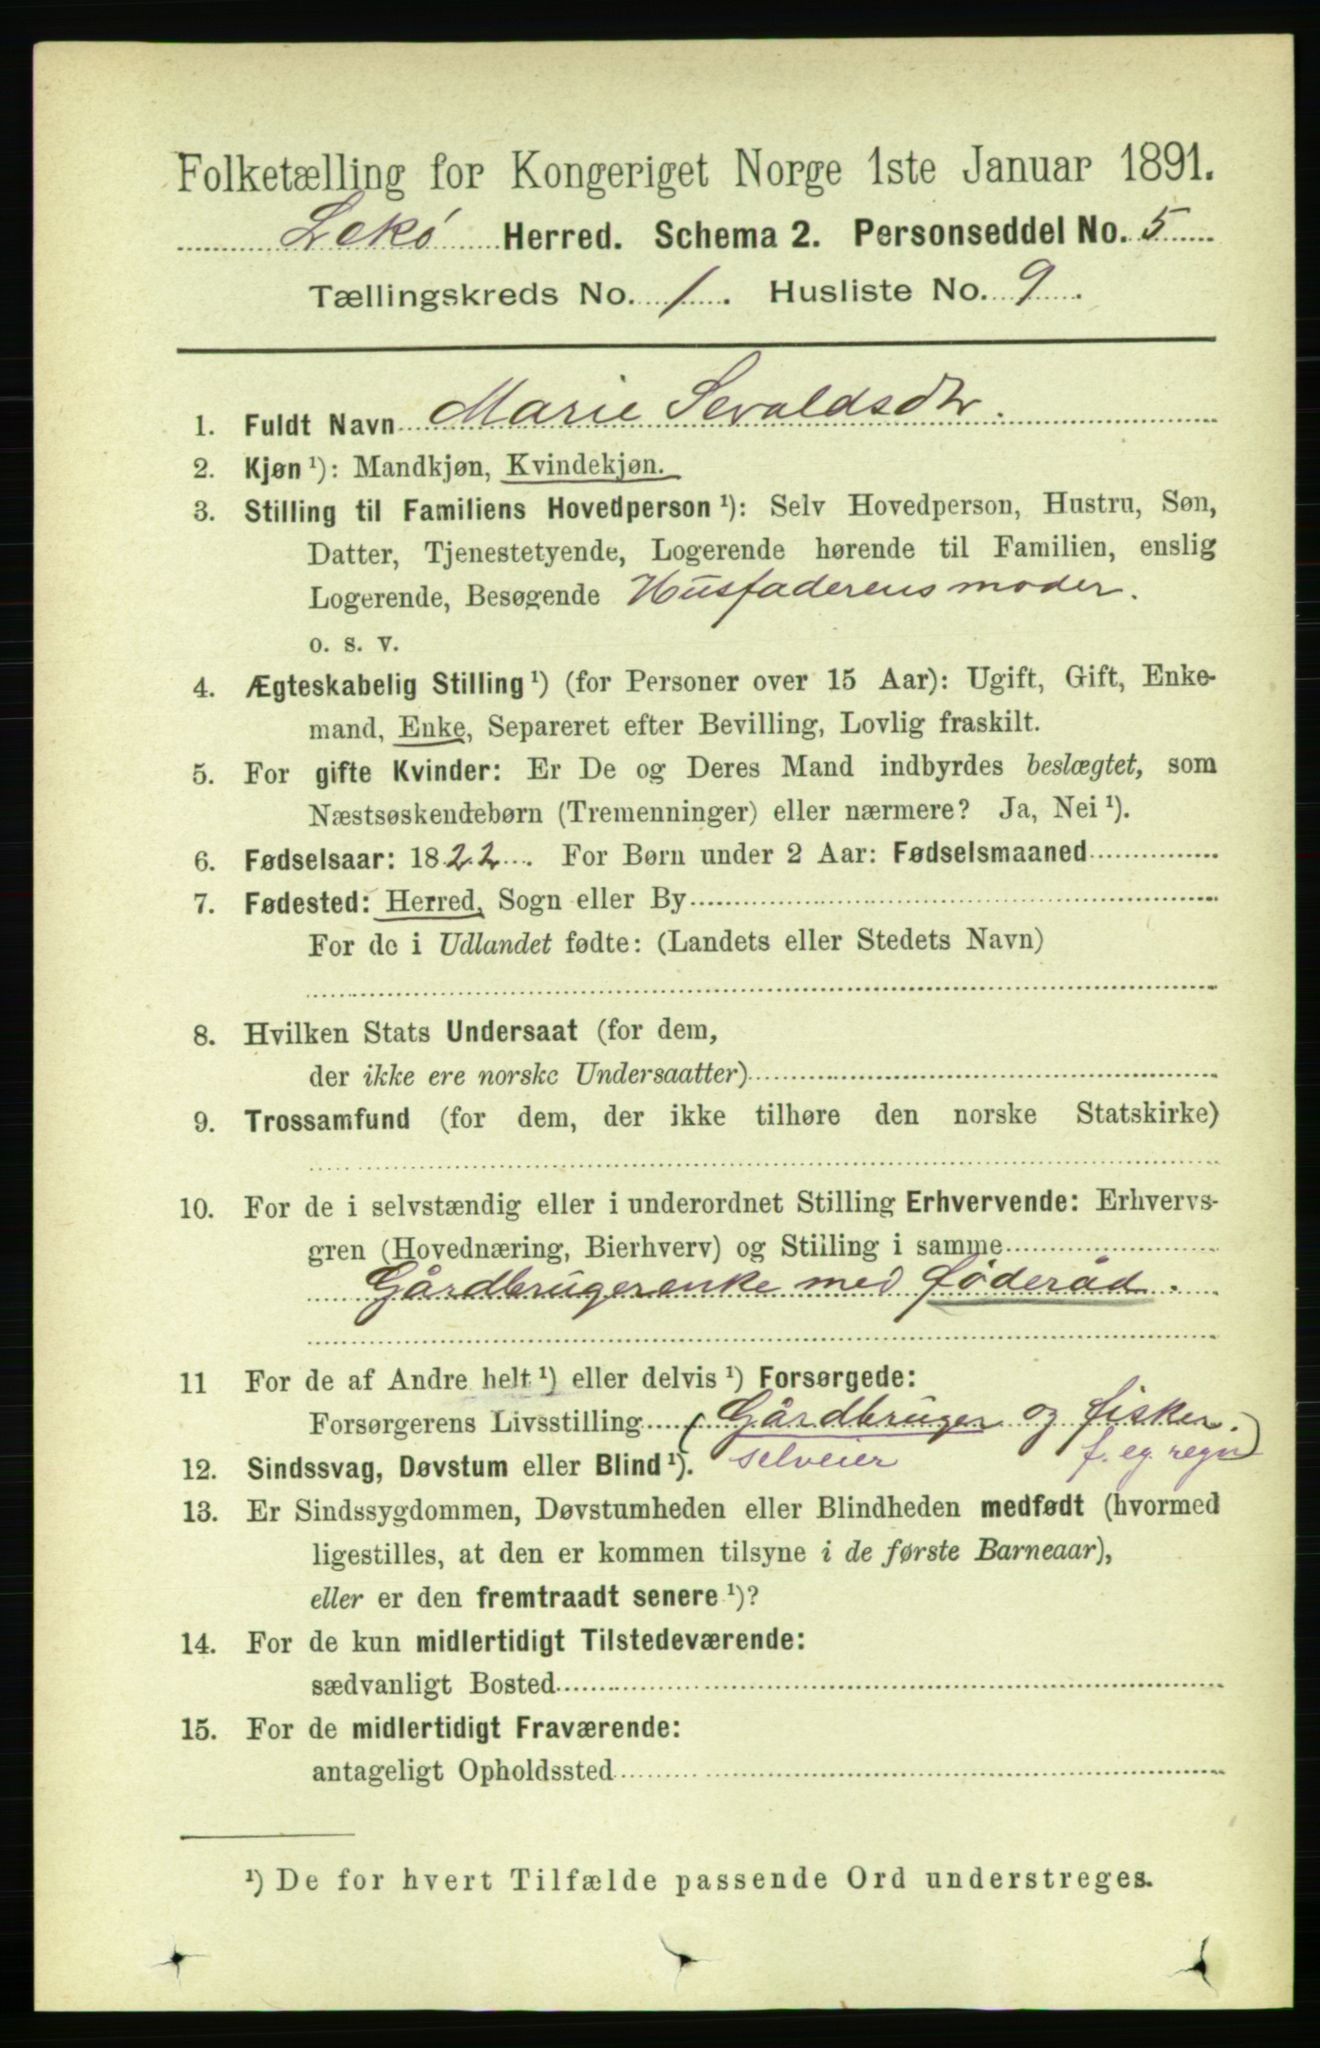 Folketælling for Kongeriget Norge 1ste Januar 1891.
Lekø Herred. Schema 2. Personseddel No. 5
Tællingskreds No. 1. Husliste No. 9
1. Fuldt Navn Marie Sevaldsdtr.
2. Kjøn ¹): Mandkjøn, Kvindekjøn.
3. Stilling til Familiens Hovedperson ¹): Selv Hovedperson, Hustru, Søn,
Datter, Tjenestetyende, Logerende hørende til Familien, enslig
Logerende, Besøgende Husfaderens moder.
o. s. v.
4. Ægteskabelig Stilling ¹) (for Personer over 15 Aar): Ugift, Gift, Enke-
mand, Enke, Separeret efter Bevilling, Lovlig fraskilt.
5. For gifte Kvinder: Er De og Deres Mand indbyrdes beslægtet, som
Næstsøskendebørn (Tremenninger) eller nærmere? Ja, Nei ¹).
6. Fødselsaar: 1822. For Børn under 2 Aar: Fødselsmaaned
7. Fødested: Herred, Sogn eller By
For de i Udlandet fødte: (Landets eller Stedets Navn)
8. Hvilken Stats Undersaat (for dem,
der ikke ere norske Undersaatter)
9. Trossamfund (for dem, der ikke tilhøre den norske Statskirke)
10. For de i selvstændig eller i underordnet Stilling Erhvervende: Erhvervs-
gren (Hovednæring, Bierhverv) og Stilling i samme
Gårdbrugerenke med føderåd.
11 For de af Andre helt ¹) eller delvis ¹) Forsørgede:
Forsørgerens Livsstilling (Gårdbruger og fisker.
12. Sindssvag, Døvstum eller Blind ¹). selveier f. eg. regn)
13. Er Sindssygdommen, Døvstumheden eller Blindheden medfødt (hvormed
ligestilles, at den er kommen tilsyne i de første Barneaar),
eller er den fremtraadt senere ¹)?
14. For de kun midlertidigt Tilstedeværende:
sædvanligt Bosted
15. For de midlertidigt Fraværende:
antageligt Opholdssted
¹) De for hvert Tilfælde passende Ord understreges.